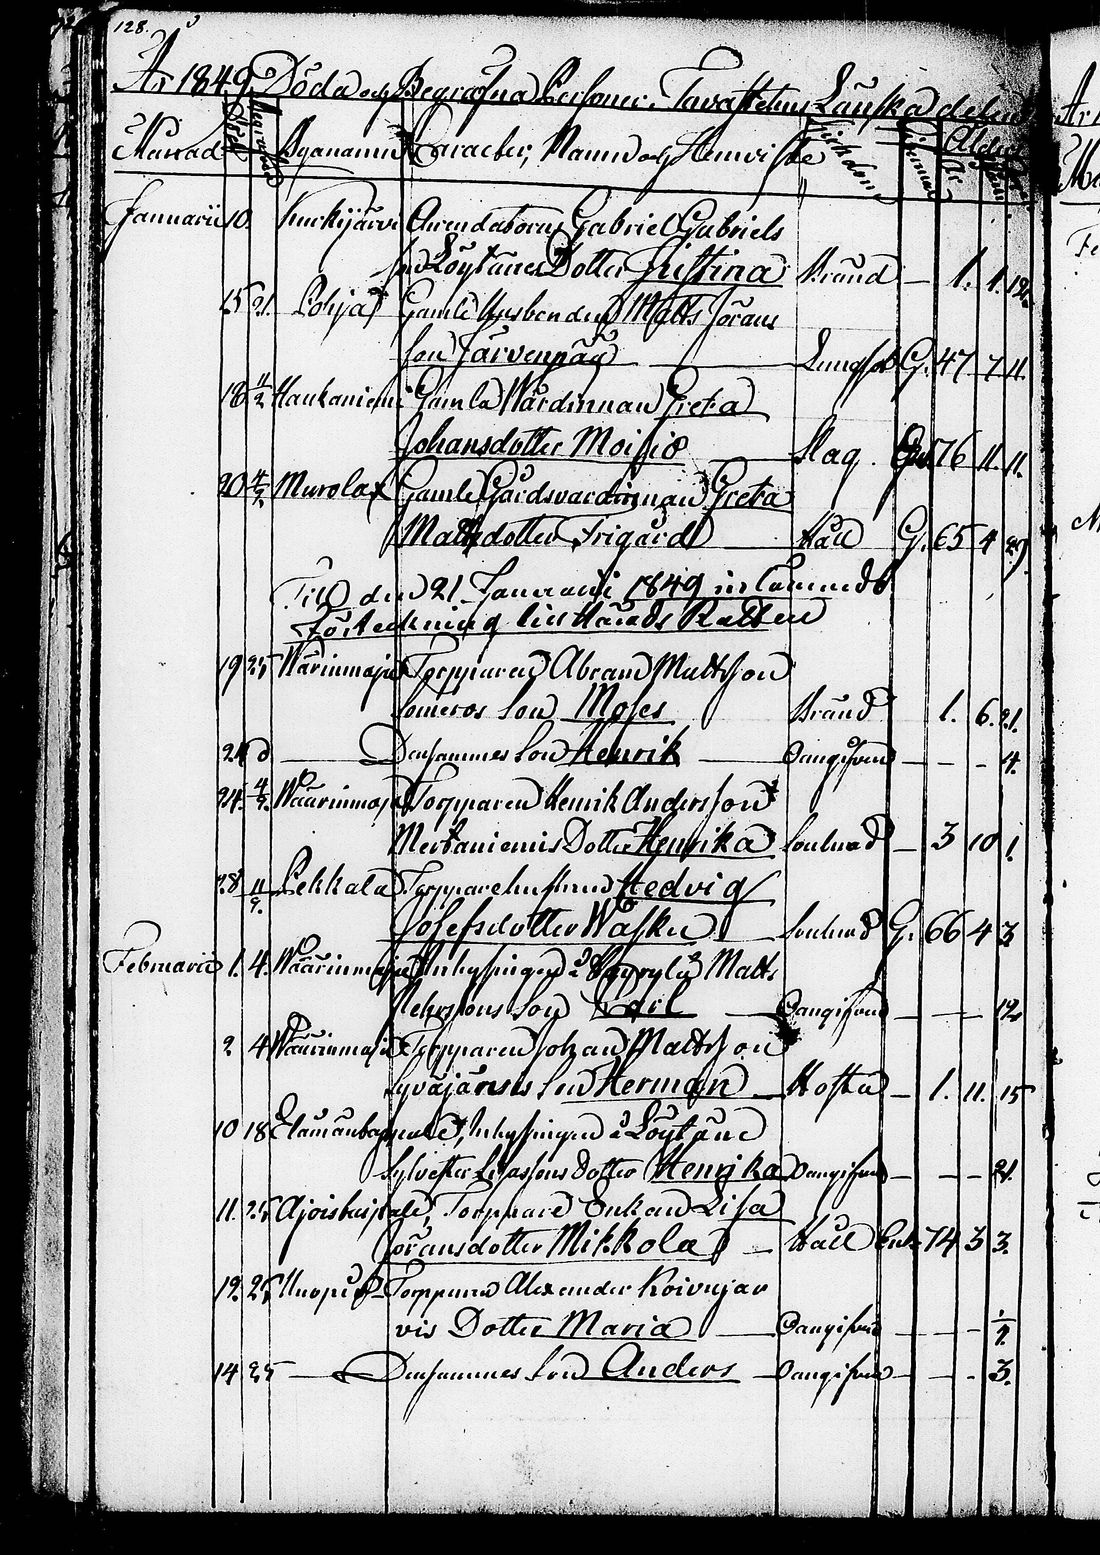 128.
År 1849 Döda och Begrafna Personer. Tavastehus Länska delen
Månad Död Begrafne Byanamn Caracter, Namn och Hemviste Sjukdom Ålder År
Januarii 10. Kurkijärvi Arrendatorns Gabriel Gabriels
son Löytänes Dotter Justina Bränd — 1. 1. 12.
15 21. Pohja Gamle Husbonden Matts Jörans
son Järvenpää — Lungsot G. 47 7 11.
18 11/2 Haukaniemi Gamla Wärdinnan Greta
Johansdotter Moisio — Slag 76 11 11.
20 4/2 Murola Gamle Gårdsvärdinnan Greta
Mattsdotter Frigård — Håll G. 65 4 29
Till den 21 Januarii 1849
Förteckning till Härads Rätten
19 25 Wäärinmaja Torpparen Abram Mattsson
Someros Son Moses Bränd 1. 6. 21.
24 d — Densammes Son Henrik — Oangifven — — 4.
24. 4/2. Wäärinmaja Torpparen Henrik Andersson
Mertaniemis Dotter Henrika Soulnad — 3 10 1.
28 11/2. Pekkala Torpparehustrun Hedvig
Josefsdotter Wasku — Soulnad G. 66 4 3
Februarii 1. 4. Wäärinmaja Inhysingen å Matts
son Karl — Oangifven — — 12.
2 4 Wäärinmaja Torpparen Johan Mattsson
Syväjärvis Son Herman — Hosta — 1. 11. 15
10 18 Inhysingen å Löytäne
Sylvester Dotter Henrika Oangifven — — 21.
11. 25 Torppare Enkan Lisa
Jöransdotter Mikkola — Håll Enk. 74 3 3.
12. 25 Torpparen Alexander Koivujär
vis Dotter Maria — Oangifven — — 1/2.
14 25 — Densammes Son Anders — Oangifven — — 3.